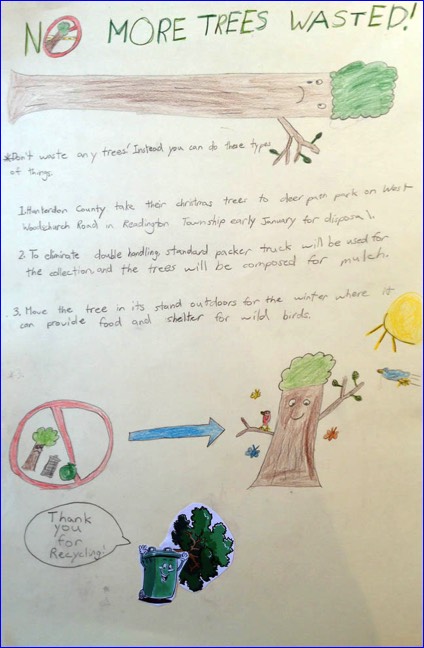 NO MORE TREES WASTED!
*Don't waste any trees! Instead you can do these types
of things.
1. Hunterdon County take their christmas trees to deer path park on West
Woodschurch Road in Readington Township early January for disposal.
2. To eliminate double handling, standard packer truck will be used for
the collection, and the trees will be composed for mulch.
3. Move the tree in its stand outdoors for the winter where it
can provide food and shelter for wild birds.
Thank
you
for
Recycling!